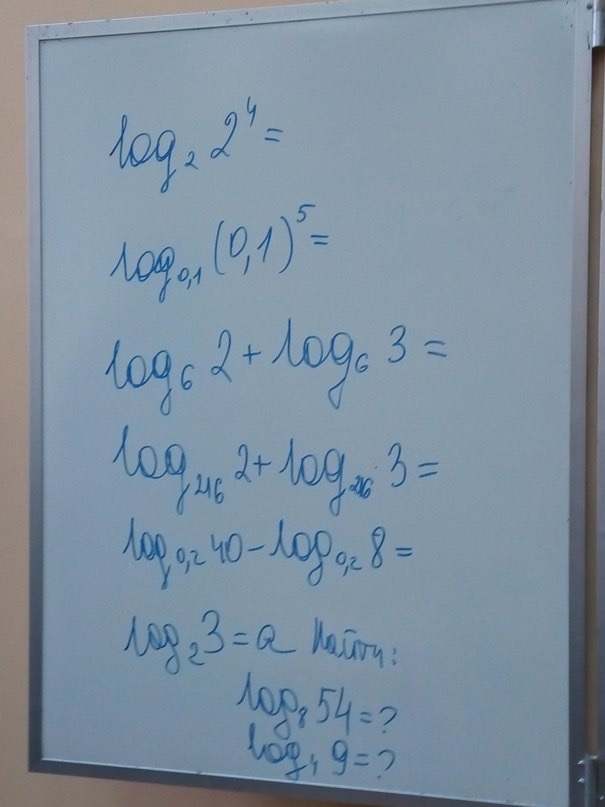 log₂ 2⁴ =
log₀,₁ (0,1)⁵ =
log₆ 2 + log₆ 3 =
log₂₁₆ 2 + log₂₁₆ 3 =
log₀,₂ 40 - log₀,₂ 8 =
log₂ 3 = a Найти:
log₈ 54 = ?
log₄ 9 = ?